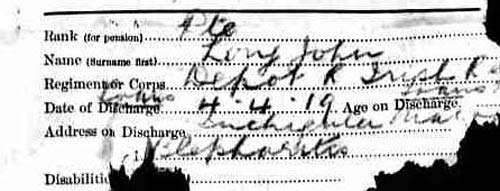 Rank (for pension) Pte
Name (Surname first) Long John
Regiment or Corps. Depot R Irish R
Date of Discharge 4.4.19. Age on Discharge.
Address on Discharge Inchigeela
Blepharitis
Disabiliti